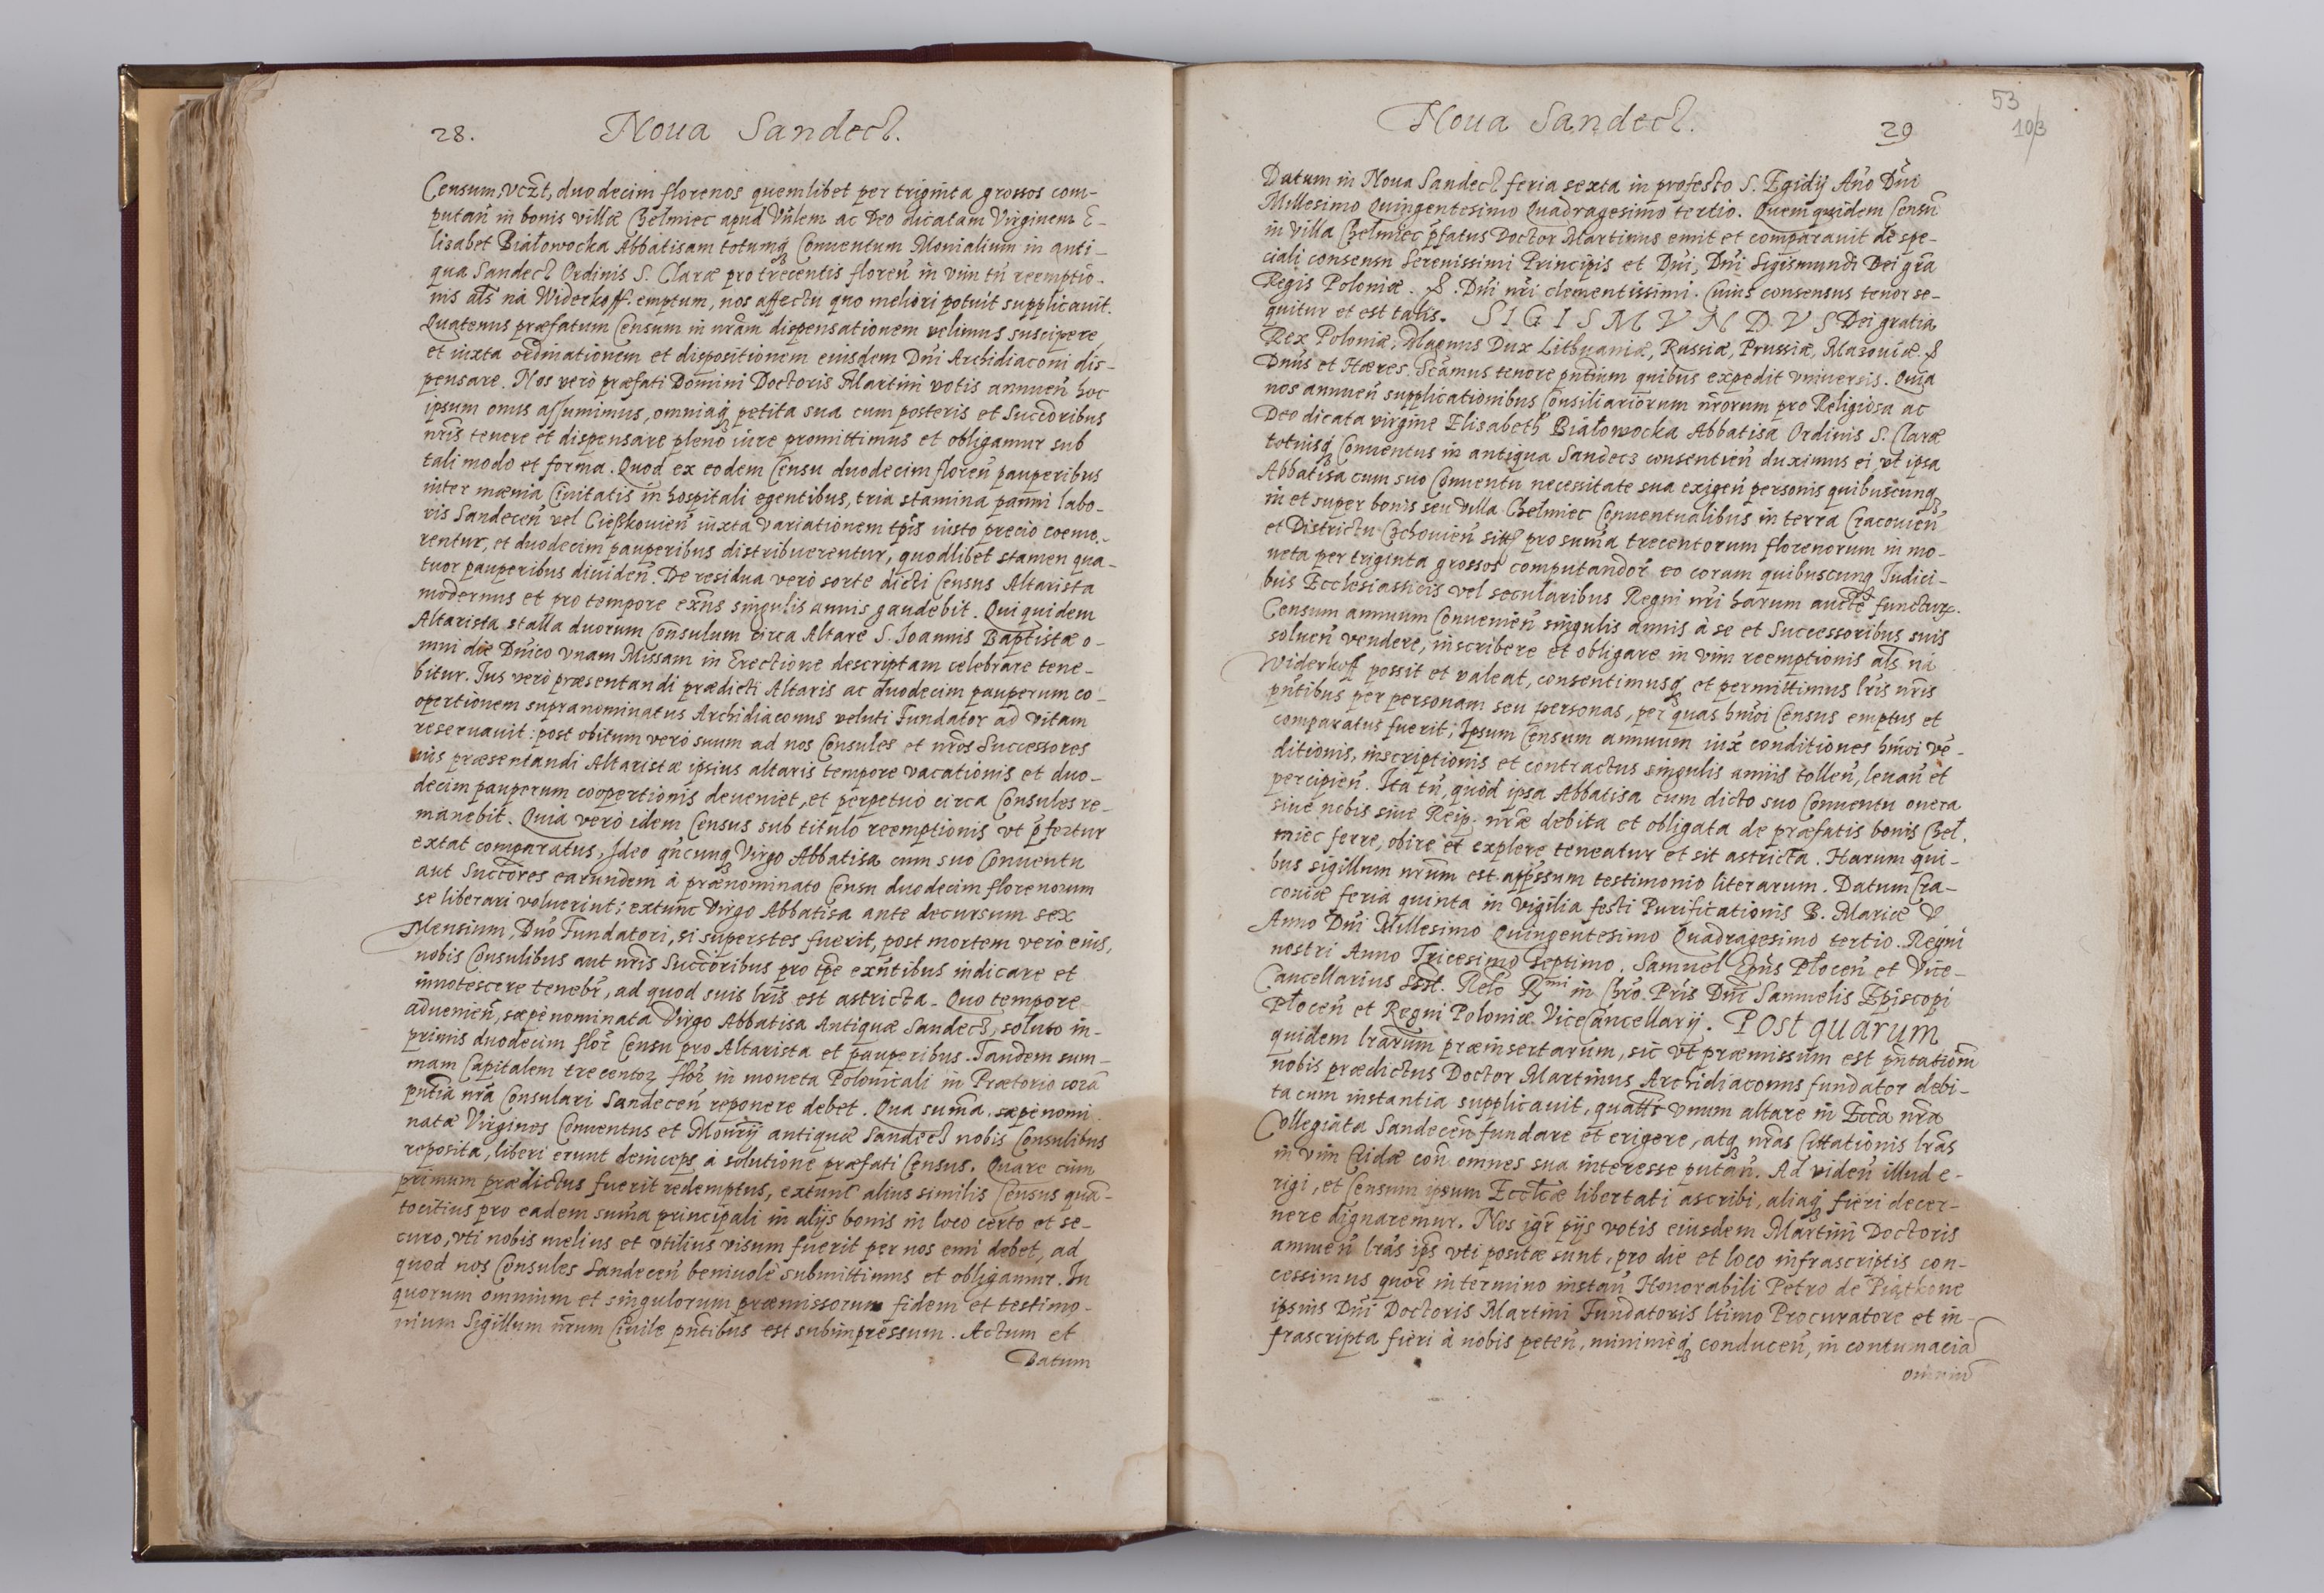 28. Noua Sandecz.
Censum, vczt, duodecim florenos quemlibet per triginta grossos com-
putan̄ in bonis villæ Chełmiec apud Vn̄lem ac Deo dicatam Virginem E-
lisabet Białowocka Abbatisam totumq̢ Conuentum Monialium in anti-
qua Sandecz Ordinis S. Claræ pro trecentis floren̄ in vim tn̄ reemptio-
nis al̄s na Widerkoff. emptum, nos affectu quo meliori potuit supplicauit.
Quatenus præfatum Censum in nr̄am dispensationem velimus suscipere,
et iuxta ordinationem et dispositionem eiusdem Dn̄i Archidiaconi dis-
pensare. Nos verò præfati Domini Doctoris Martini votis annuen̄ hoc
ipsum onus assumimus, omniaq̢ petita sua cum posteris et Succoribus
nr̄is tenere et dispensare pleno iure promittimus et obligamur sub
tali modo et forma. Quod ex eodem Censu duodecim floren̄ pauperibus
inter mænia Ciuitatis in hospitali egentibus, tria stamina panni labo-
ris Sandecen̄ vel Cießkouien̄ iuxta variationem tp̄is iusto precio coeme-
rentur, et duodecim pauperibus distribuerentur, quodlibet stamen qua-
tuor pauperibus diuiden̄. De residua verò sorte dicti Census Altarista
modernus et pro tempore exn̄s singulis annis gaudebit. Qui quidem
Altarista stalla duorum Consulum circa Altare S. Ioannis Baptistæ o-
mni die Dn̄ico vnam Missam in Erectione descriptam celebrare tene-
bitur. Ius verò præsentandi prædicti Altaris ac duodecim pauperum co-
opertionem supranominatus Archidiaconus veluti Fundator ad vitam
reseruauit: post obitum verò suum ad nos Consules et nr̄os Successores
ius præsentandi Altaristæ ipsius altaris tempore vacationis et duo-
decim pauperum coopertionis deueniet, et perpetuò circa Consules re-
manebit. Quia verò idem Census sub titulo reemptionis vt p̄fertur
extat comparatus, Ideo qn̄cunq̢ Virgo Abbatisa cum suo Conuentu
aut Succores earundem à prænominato Censu duodecim florenorum
se liberari voluerint; extunc Virgo Abbatisa ante decursum sex
Mensium, Dn̄o Fundatori, si superstes fuerit, post mortem verò eius,
nobis Consulibus aut nr̄is Succoribus pro tp̄e exn̄tibus indicare et
innotescere tenebr̄, ad quod suis lr̄is est astricta. Quo tempore
aduenien̄, sæpenominata Virgo Abbatisa Antiquæ Sandecz, soluto in-
primis duodecim flor̄ Censu pro Altarista et pauperibus. Tandem sum-
mam Capitalem trecentoꝝ flor̄ in moneta Polonicali in Prætorio corā
pn̄tia nr̄a Consulari Sandecen̄ reponere debet. Qua sum̄a sæpenomi-
natæ Virgines Conuentus et Mon̄rij antiquæ Sandecz nobis Consulibus
reposita, liberi erunt deinceps à solutione præfati Census. Quare cùm
primum prædictus fuerit redemptus, extunc alius similis Census quan-
tocitius pro eadem sum̄a principali in alijs bonis in loco certo et se-
curo, vti nobis melius et vtilius visum fuerit per nos emi debet, ad
quod nos Consules Sandecen̄ beniuolè submittimus et obligamur. In
quorum omnium et singulorum præmissorum fidem et testimo-
nium Sigillum nr̄um Ciuile pn̄tibus est subimpressum. Actum et
Datum
53
103
Noua Sandecz. 29
Datum in Noua Sandecz feria sexta in profesto S. Egidij An̄o Dn̄i
Millesimo Quingentesimo Quadragesimo tertio. Quem quidem Censū
in villa Chełmiec p̄fatus Doctor Martinus emit et comparauit de spe-
ciali consensu Serenissimi Principis et Dn̄i, Dn̄i Sigismundi Dei gr̄a
Regis Poloniæ. &. Dn̄i nr̄i clementissimi. Cuius consensus tenor se-
quitur et est talis. SIGISMVNDVS Dei gratia
Rex Poloniæ, Magnus Dux Lithuaniæ, Russiæ, Prussiæ, Mazouiæ. &
Dn̄us et Hæres. Scamus tenore pn̄tium quibus expedit vniuersis. Quia
nos annuen̄ supplicationibus Consiliariorum nr̄orum pro Religiosa ac
Deo dicata virgine Elisabeth Białowocka Abbatisa Ordinis S. Claræ
totiusq̢ Conuentus in antiqua Sandecz consentien̄ duximus ei vt ipsa
Abbatisa cum suo Conuentu necessitate sua exigen̄ personis quibuscunq̢
in et super bonis seu villa Chełmiec Conuentualibus in terra Cracouien̄
et Districtu Czchouien̄ pro sum̄a trecentorum florenorum in mo-
neta per triginta grossos computandor̄ eo coram quibuscunq̢ Iudici-
bus Ecclesiasticis vel secularibus Regni nr̄i harum auctē functur̄.
Censum annuum Conuenien̄ singulis annis à se et Successoribus suis
soluen̄ vendere, inscribere et obligare in vim reemptionis al̄s na
Widerkoff possit et valeat, consentimusq̢ et permittimus lr̄is nr̄is
pn̄tibus per personam seu personas, per quas hm̄oi Census emptus et
comparatus fuerit; Ipsum Censum annuum iux̄ conditiones hm̄oi ve-
ditionis, inscriptionis et contractus singulis annis tollen̄, leuan̄ et
percipien̄. Ita tn̄, quòd ipsa Abbatisa cum dicto suo Conuentu onera
siue nobis siue Reip. nr̄æ debita et obligata de præfatis bonis Cheł-
miec ferre, obire et explere teneatur et sit astricta. Harum qui-
bus sigillum nr̄um est app̄ssum testimonio literarum. Datum Cra-
couiæ feria quinta in vigilia festi Purificationis B. Mariæ V
Anno Dn̄i Millesimo Quingentesimo Quadragesimo tertio. Regni
nostri Anno Tricesimo Septimo. Samuel Ep̄us Płocen̄ et Vice-
Cancellarius sst. Relō Rmi in Chr̄o Pr̄is Dn̄i Samuelis Episcopi
Płocen̄ et Regni Poloniæ ViceCancellarij. Post quarum
quidem lr̄arum præinsertarum, sic vt præmissum est pn̄tationem
nobis prædictus Doctor Martinus Archidiaconus fundator debi-
ta cum instantia supplicauit, vnum altare in Ecc̄a nr̄a
Collegiata Sandecen̄ fundare et erigere, atq̢ nr̄as Cittationis lr̄as
in vim Cridæ con̄ omnes sua interesse putan̄. Ad viden̄ illud e-
rigi, et Censum ipsum Eccl̄iæ libertati ascribi, aliaq̢ fieri decer-
nere dignaremur. Nos igr̄ pijs votis eiusdem Martini Doctoris
annuen̄ lr̄as ip̄s vti positæ sunt, pro die et loco infrascriptis con-
cessimus quor̄ in termino instan̄ Honorabili Petro de Piątkone
ipsius Dn̄i Doctoris Martini Fundatoris ltimo Procuratore et in-
frascripta fieri à nobis peten̄, minimèq̢ conducen̄, in contumacia
omnium